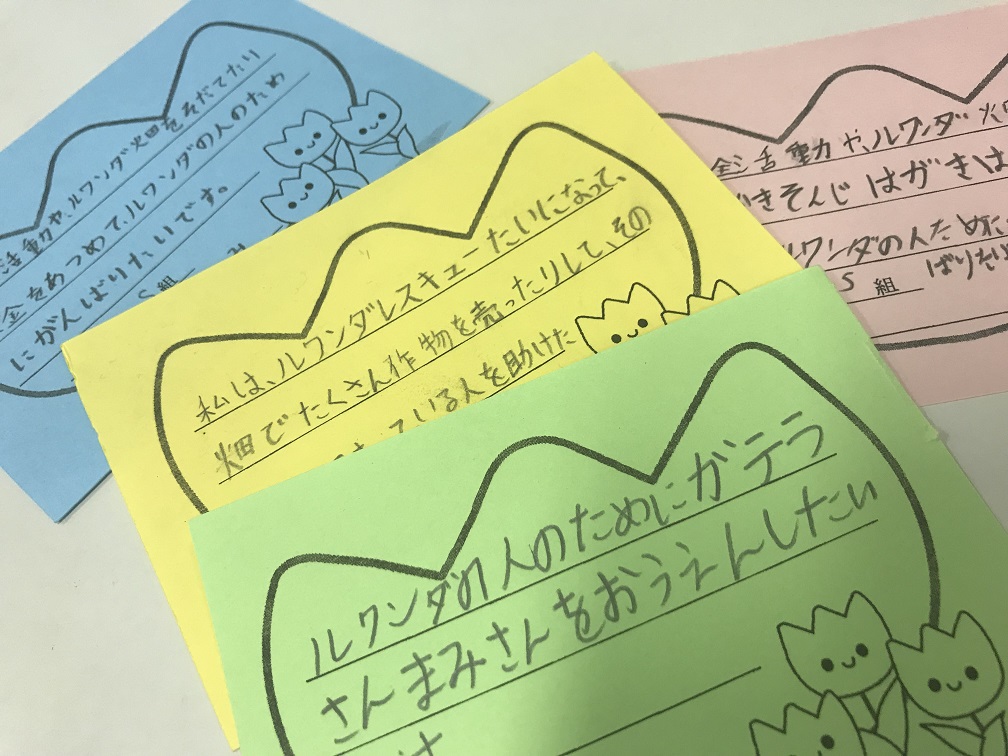 活動や、ルワンダ畑をそだてたり
金をあつめて、ルワンダの人のため
にがんばりたいです。
5組
私は、ルワンダレスキューたいになって、
畑でたくさん作物を売ったりして、その
っている人を助けた
ルワンダの人のためにガテラ
さんまみさんをおうえんしたい
金活動や、ルワンダ
かきそんじはがきは
ルワンダの人ために
5組
ばりたい